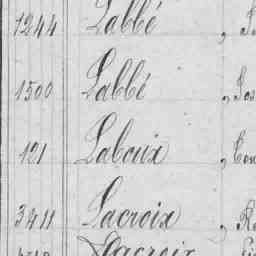 1244 Labbé
1500 Labbé , Jos
121 Laboux
3411 Lacroix
Lacroix